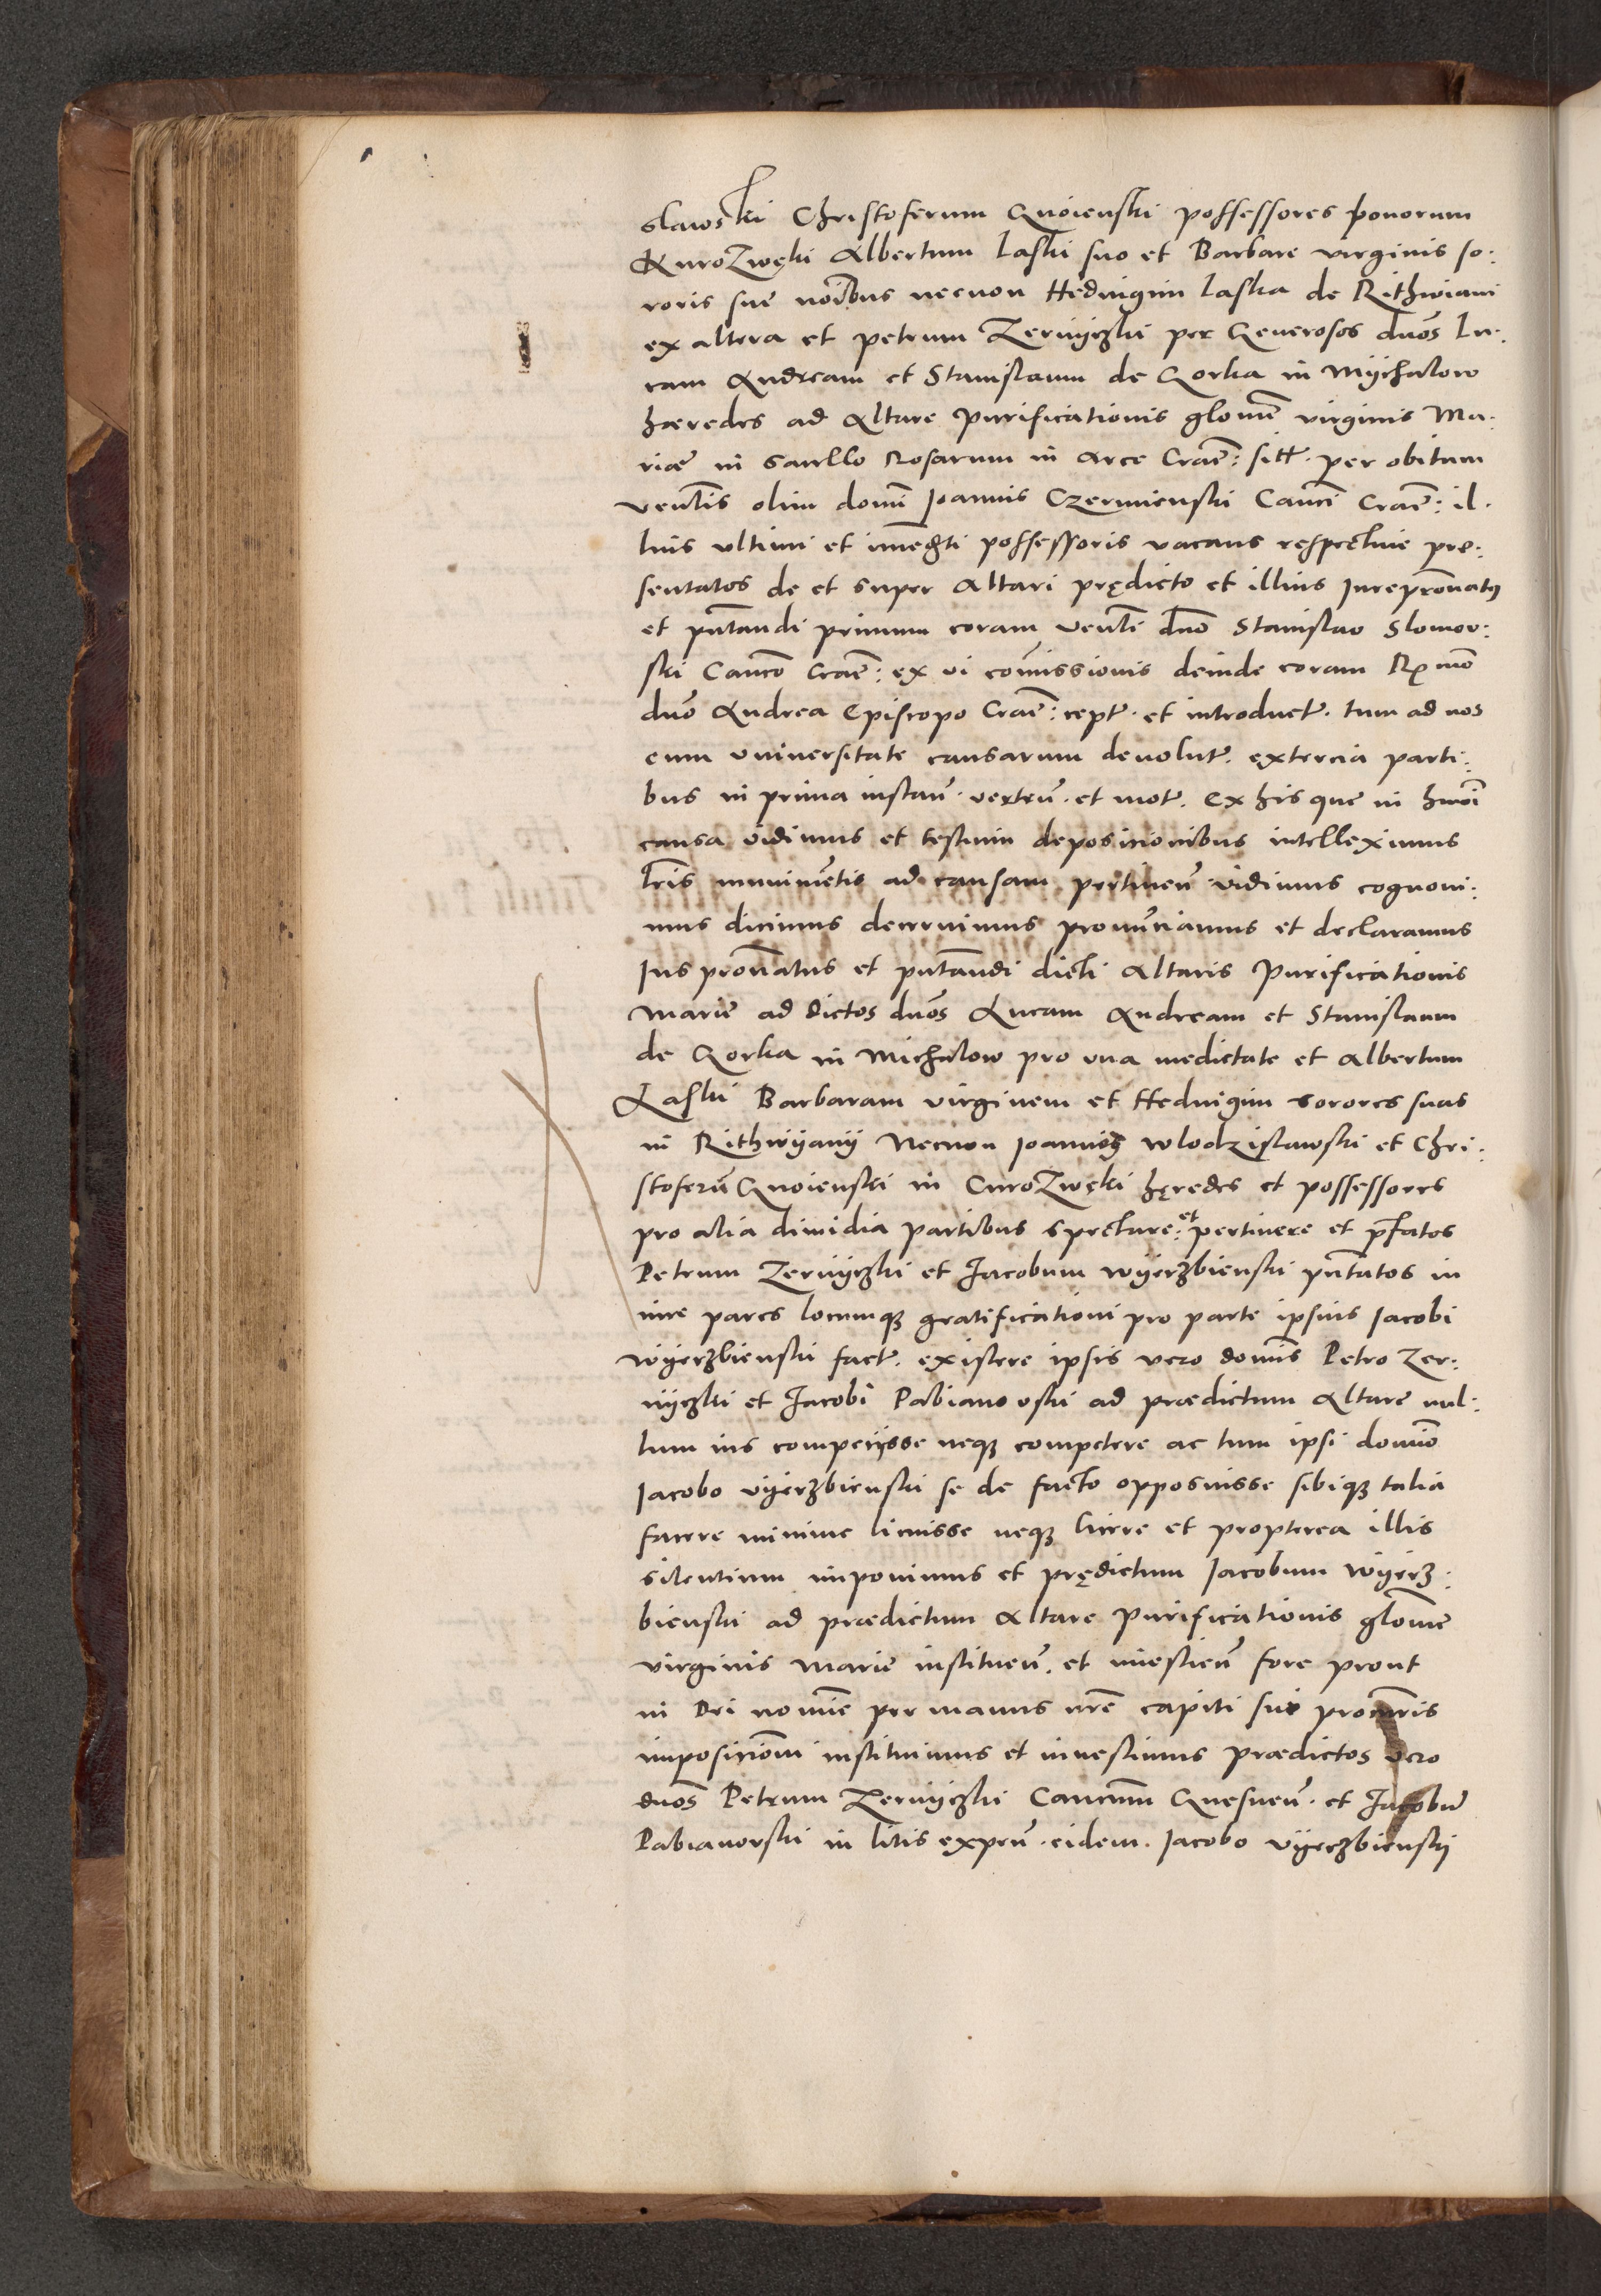 slawski Christoferum Gnoienski possessores bonorum
KuroZwęki Albertum Laski suo et Barbare virginis so:
roris sue noībus necnon Hedvigim Laska de Rithwiani
ex altera et petrum Zernyczki per Generosos dnōs Lu:
cam Andream et Stanislaum de Gorka in Mychalow
hæredes ad Altare Purificationis glonē virginis Ma:
riæ in Sacello Rosarum in Arce Craē: sitt. per obitum
ventīs olim domī Joannis Czermienski Canci Craē: il:
lius ultimi et immedti possessoris vacans respective pre:
sentatos de et super Altari prędicto et illius Jurepronatus
et pntandi primum coram Ventī dno Stanislao Slomow:
ski Canco Craē: ex vi comissionis deinde coram Rmo
dno Andrea Episcopo Craē: cept. et introduct. tum ad nos
cum universitate causarum devolut. extercia parti:
bus in prima instan. verten. et mot. Ex his que in hmoi
causa vidimus et testium depositionibus intelleximus
lris munimentis ad causam pertinen vidimus cognoui:
mus dicimus decernimus pronunciamus et declaramus
Jus pronatus et pntandi dicti Altaris Purificationis
Marie ad dictos dnos Lucam Andream et Stanislaum
de Gorka in Michalow pro una medietate et Albertum
Laski Barbaram virginem et Hedvigim Sorores suas
in Rithwyany Necnon Joannes Wlodzislawski et Chri:
stoferu Gnoienski in CuroZwęki hęredes et possessores
pro alia dimidia partibus spectare: et pertinere et prefatos
Petrum Zernyczki et Jacobum Wyerzbienski pntatos in
iure pares locumq gratificationi pro parte ipsius Jacobi
Wyerzbienski fact. existere ipsis vero domis Petro Zer:
nyczki et Jacobi Pabianowski ad prædictum Altare nul:
lum ius competysse neq competere ac tum ipsi domino
Jacobo Vyerzbienski se de facto opposuisse sibiq talia
facere minime licuisse neq licere et propterea illis
silentium imponimus et prędictum Jacobum Wyerz:
bienski ad prædictum Altare Purificationis glome
virginis Marie instituen. et inuestien fore prout
in Dei nomie per manus nre capiti sui procuris
impositiom instituimus et inuestimus prædictos vero
dnos Petrum Zernyczki Canonm Gnesnen. et Jacobu
Pabianovski in litis expen. eidem. Jacobo Vyerzbienskj